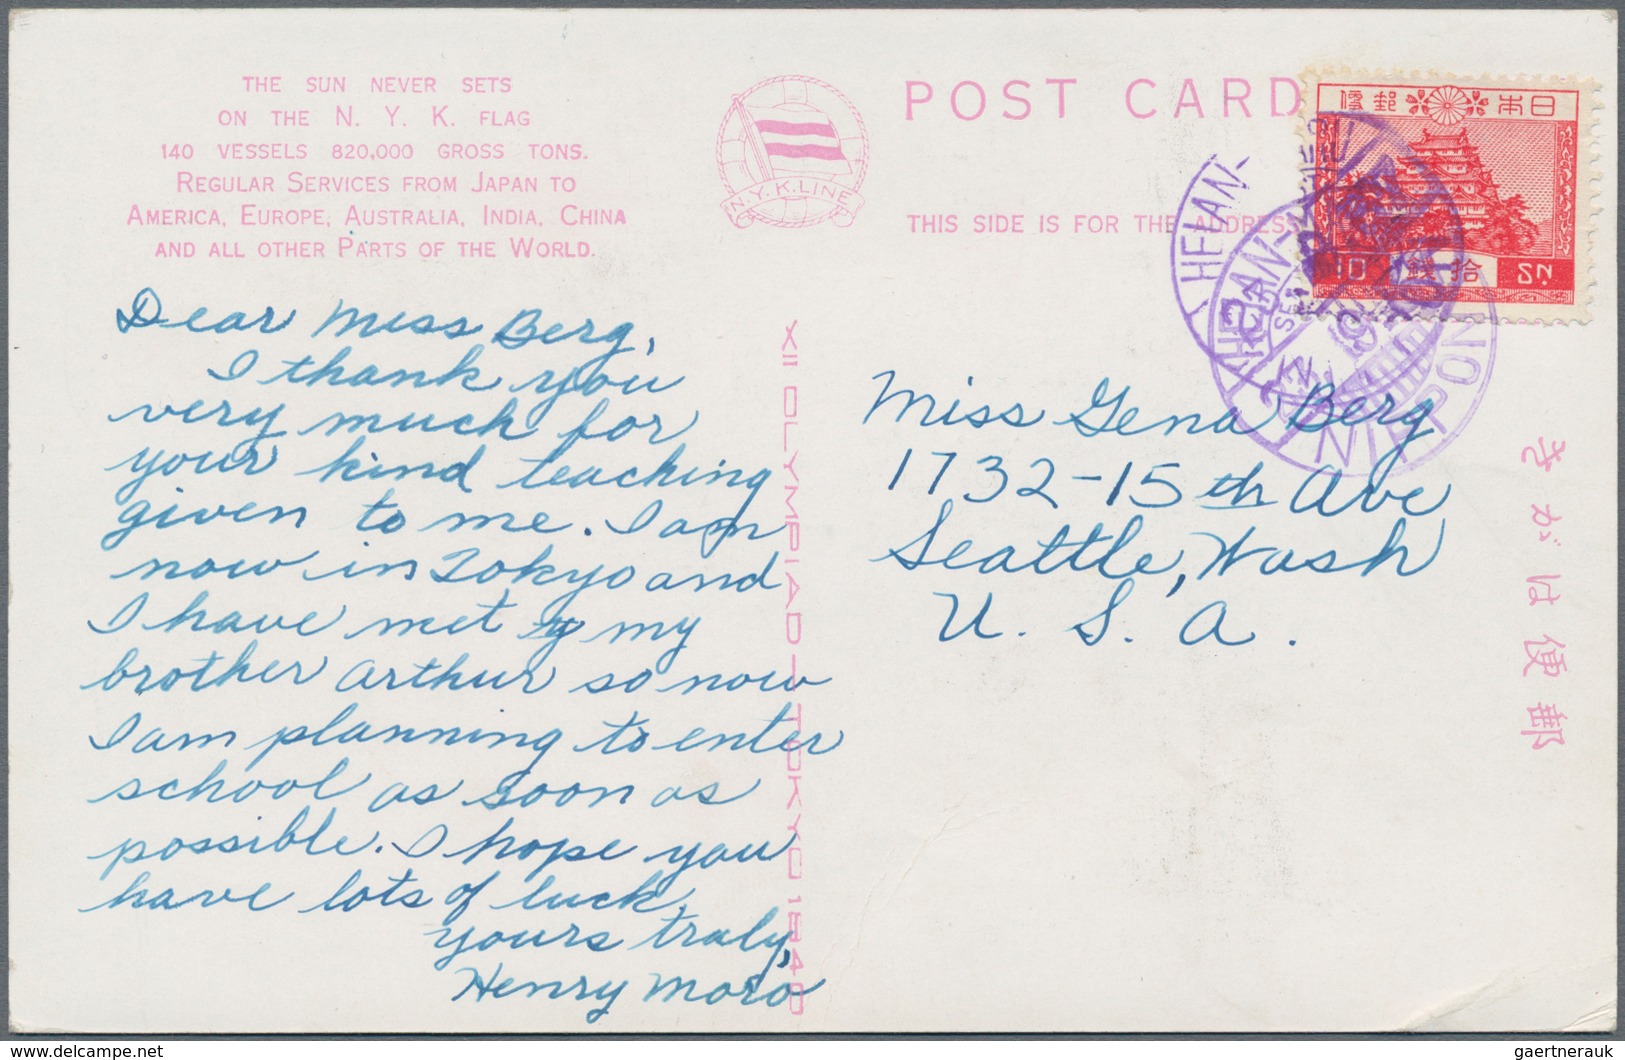 THE SUN NEVER SETS
ON THE N. Y. K. FLAG
140 VESSELS 820,000 GROSS TONS.
REGULAR SERVICES FROM JAPAN TO
AMERICA, EUROPE, AUSTRALIA, INDIA, CHINA
AND ALL OTHER PARTS OF THE WORLD.
N.Y.K.LINE
POST CARD
THIS SIDE IS FOR THE ADDRESS
日本郵便
10 拾銭 SN.
HEIAN-
HEIAN-
SEA
NIPPON
Dear Miss Berg,
I thank you
very much for
your kind teaching
given to me. I am
now in Tokyo and
I have met my
brother Arthur so now
I am planning to enter
school as soon as
possible. I hope you
have lots of luck.
yours truly,
Henry Moro
XII OLYMPIAD-TOKYO 1940
Miss Gena Berg
1732-15th Ave
Seattle, Wash
U. S. A.
郵便はがき
Delcampe.net
gaertnerauk